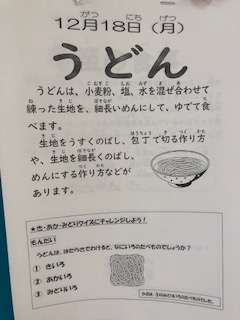 12月18日（月）
うどん
うどんは、小麦粉、塩、水を混ぜ合わせて
練った生地を、細長いめんにして、ゆでて食
べます。
生地をうすくのばし、包丁で切る作り方
や、生地を細長くのばし、
めんにする作り方などが
あります。
★き・あか・みどりクイズにチャレンジしよう！
もんだい
うどんは、はたらきでわけると、なにいろのたべものでしょうか？
① きいろ
② あかいろ
③ みどりいろ